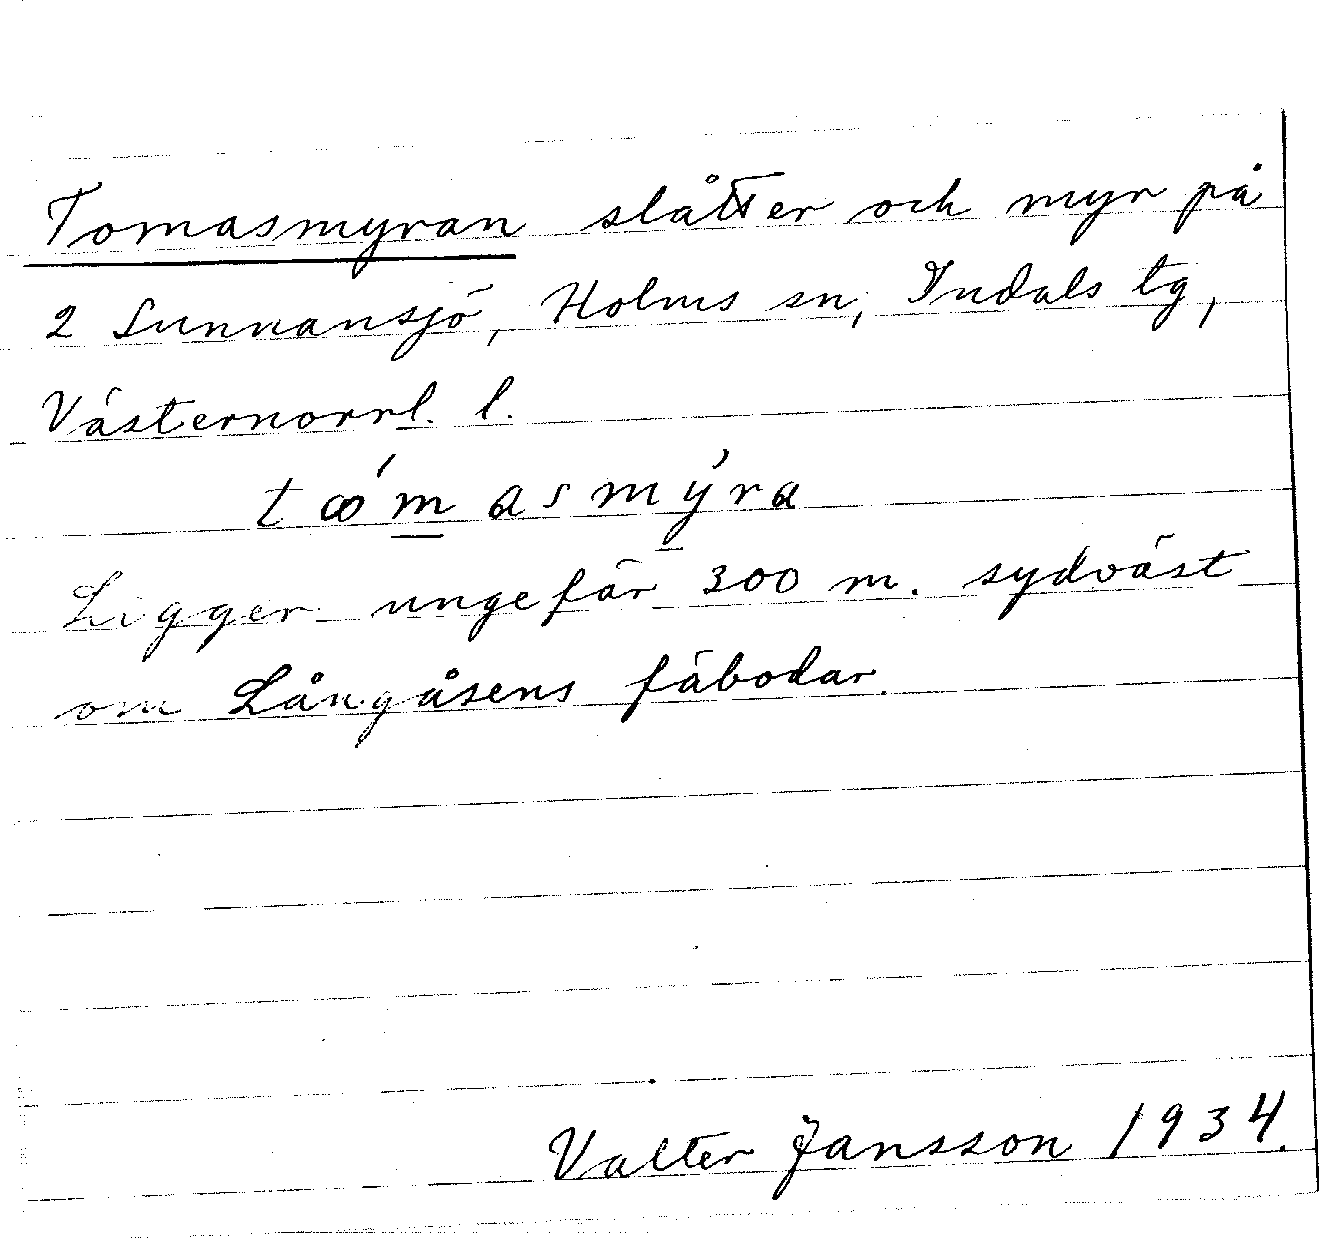 Tomasmyran slåtter och myr på
2 Sunnansjö, Holms sn, Indals tg,
Västernorrl. l.
tꝏ́masmýra
Ligger ungefär 300 m. sydväst
om Långåsens fäbodar.
Valter Jansson 1934.